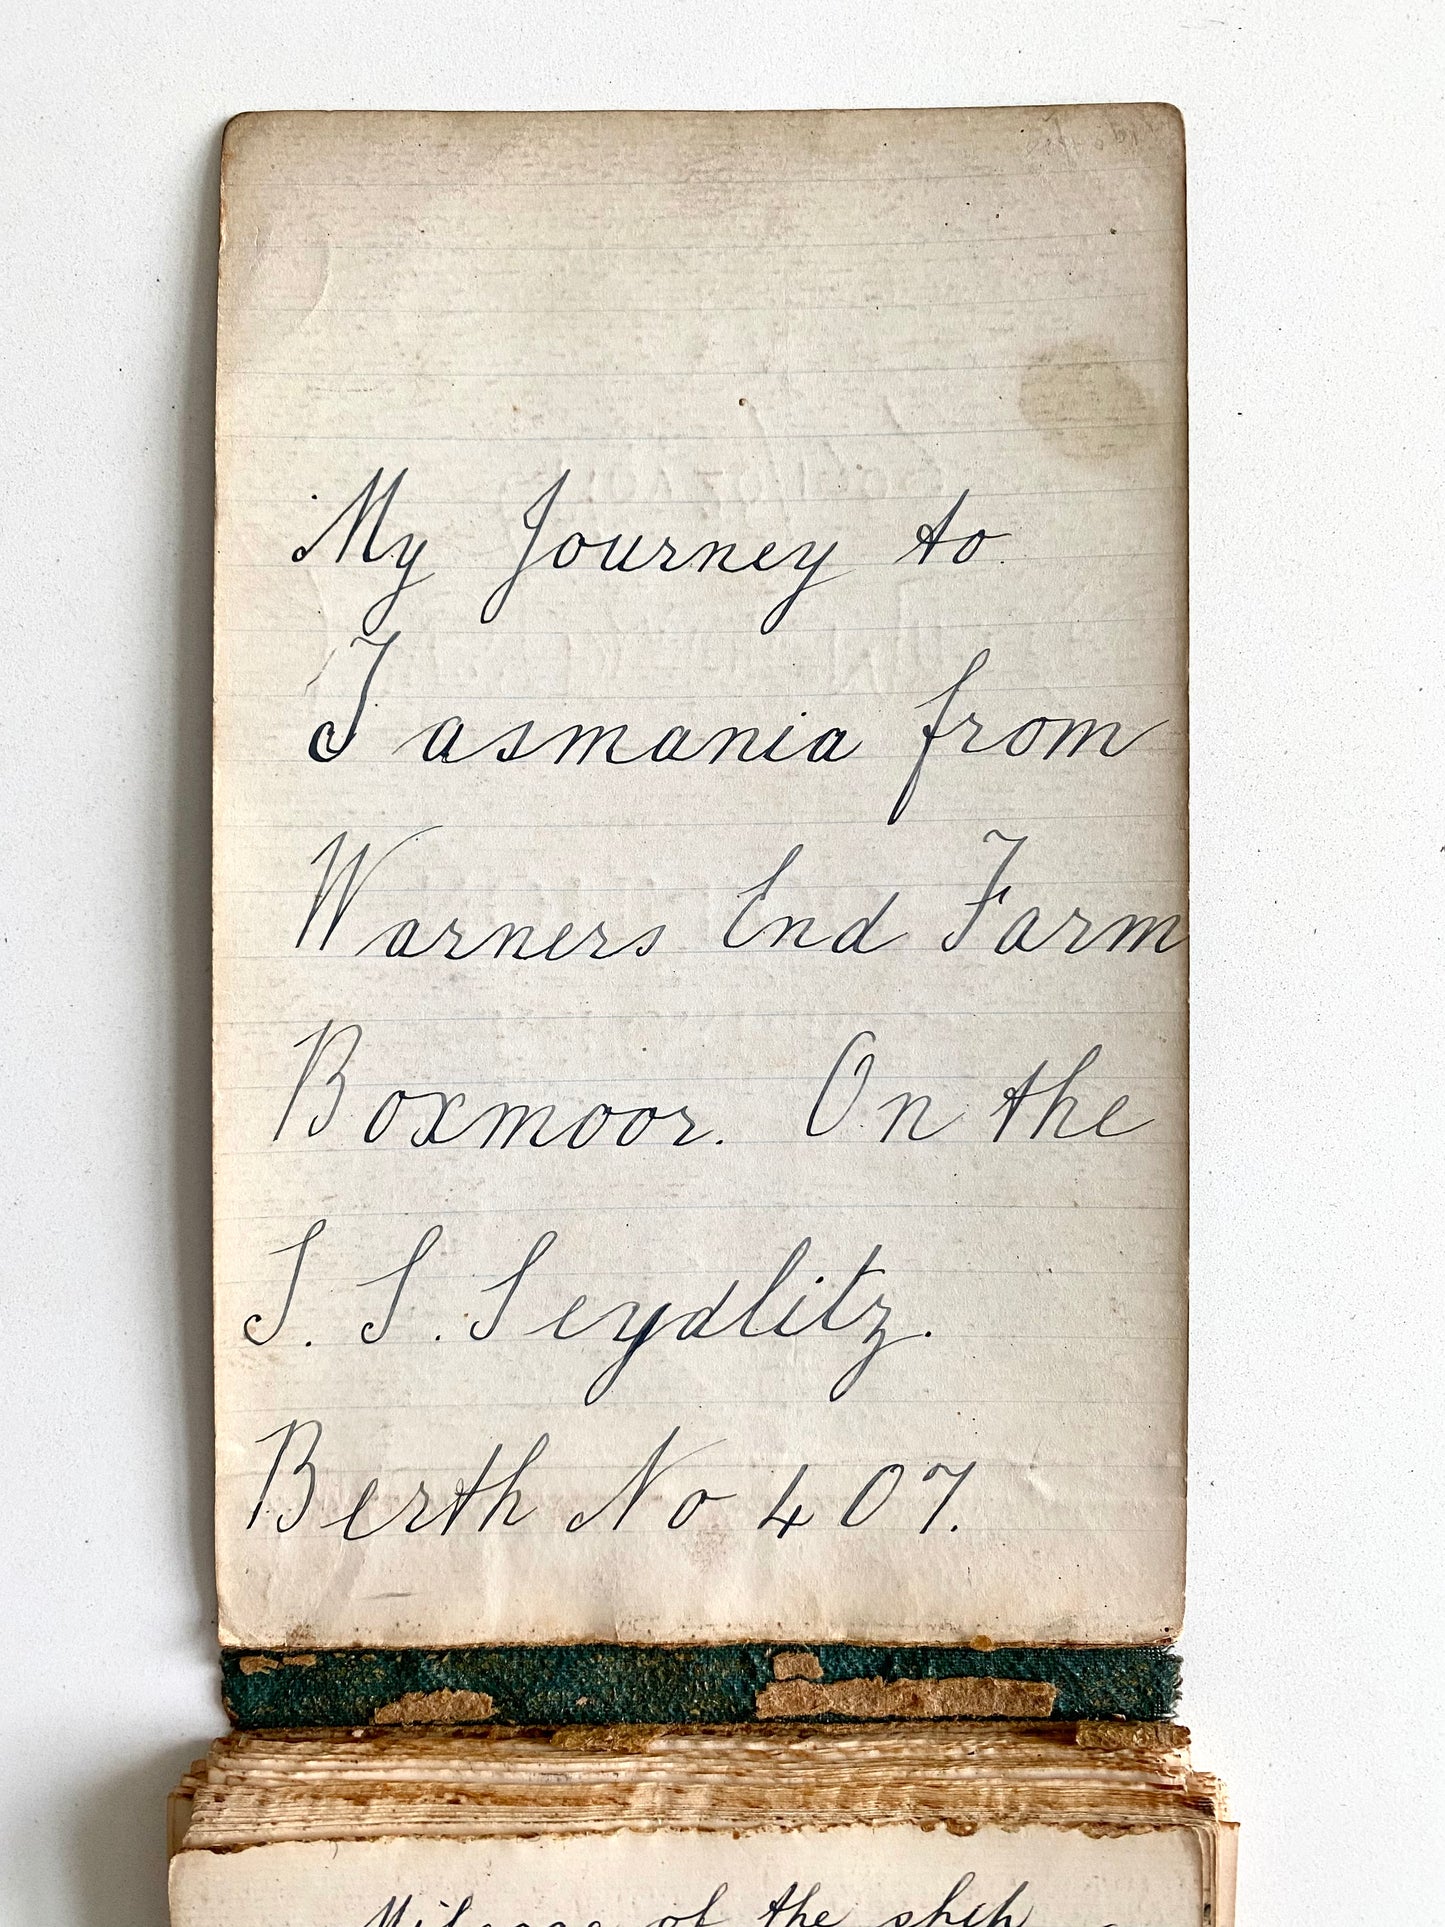 My Journey to
Tasmania from
Warners End Farm
Boxmoor. On the
S. S. Seydlitz.
Berth No 407.
Mileage of the ship